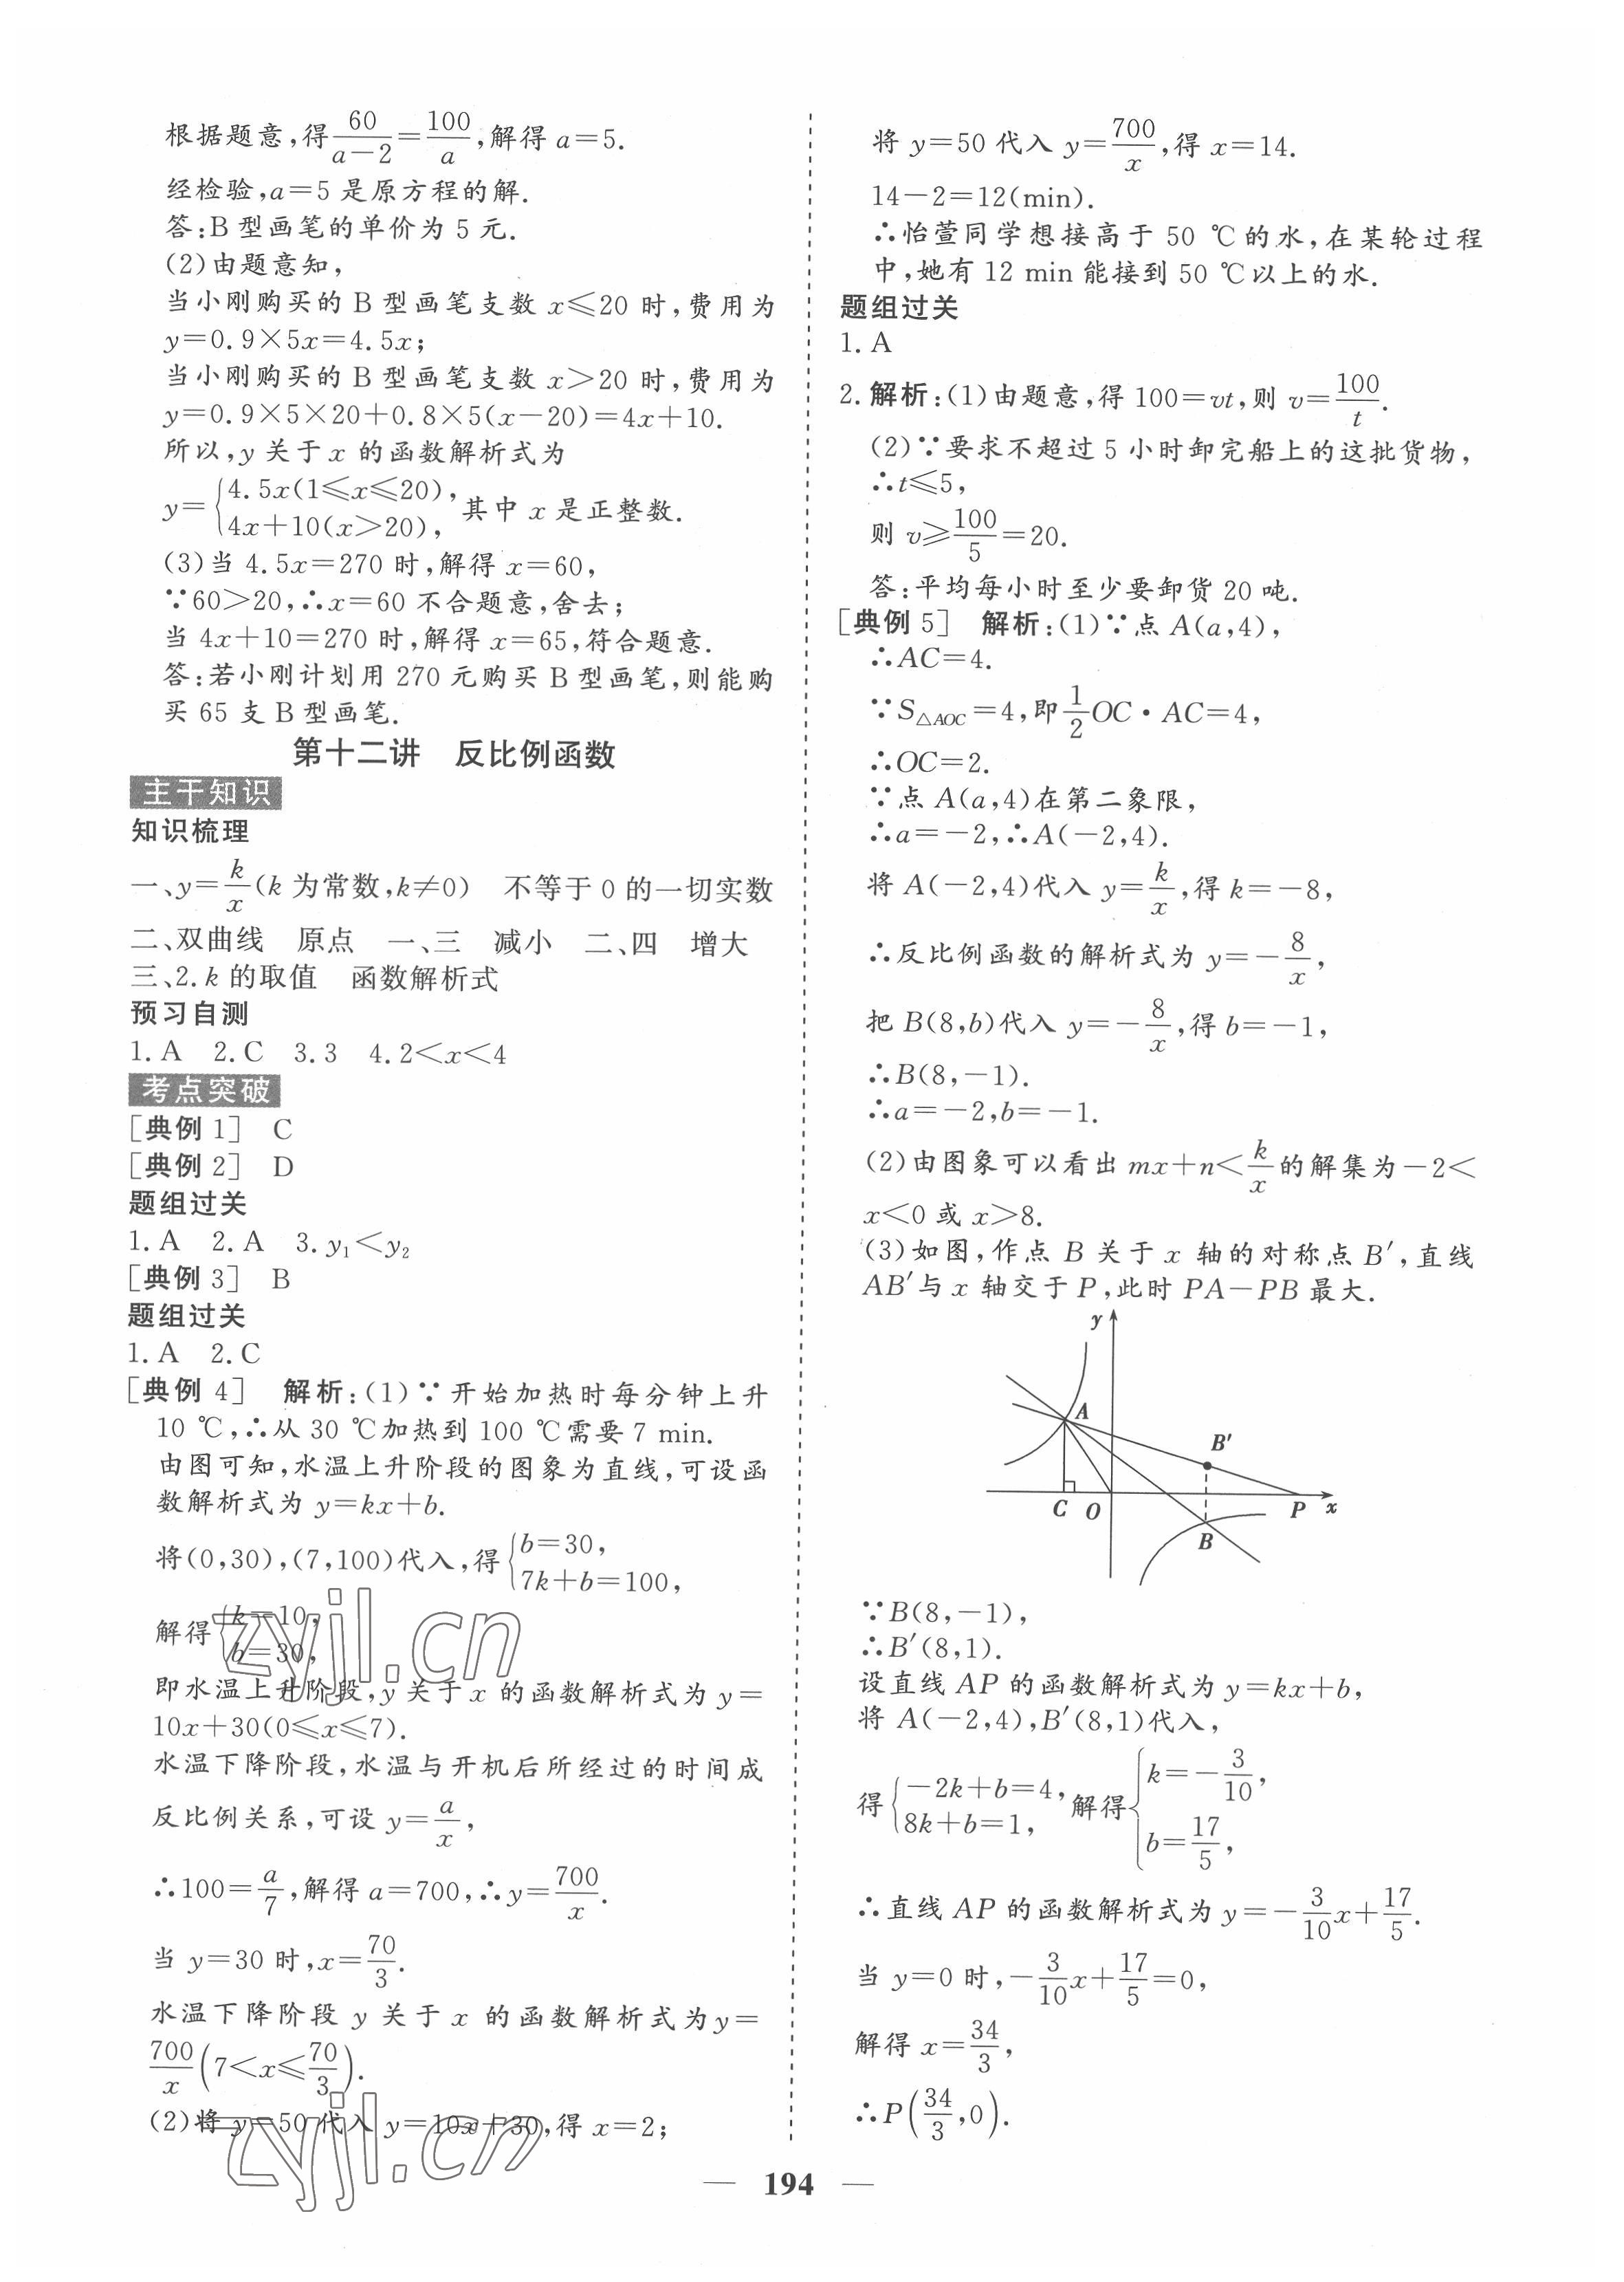 根据题意,得60/(a-2)=100/a,解得 a=5.
经检验,a=5 是原方程的解.
答:B 型画笔的单价为 5 元.
(2)由题意知,
当小刚购买的 B 型画笔支数 x≤20 时,费用为
y=0.9×5x=4.5x;
当小刚购买的 B 型画笔支数 x>20 时,费用为
y=0.9×5×20+0.8×5(x-20)=4x+10.
所以,y 关于 x 的函数解析式为
y={4.5x(1≤x≤20), 4x+10(x>20), 其中 x 是正整数.
(3)当 4.5x=270 时,解得 x=60,
∵60>20,∴x=60 不合题意,舍去;
当 4x+10=270 时,解得 x=65,符合题意.
答:若小刚计划用 270 元购买 B 型画笔,则能购
买 65 支 B 型画笔.
第十二讲 反比例函数
主干知识
知识梳理
一、y=k/x(k 为常数,k≠0) 不等于 0 的一切实数
二、双曲线 原点 一、三 减小 二、四 增大
三、2.k 的取值 函数解析式
预习自测
1.A 2.C 3.3 4.2<x<4
考点突破
[典例 1] C
[典例 2] D
题组过关
1.A 2.A 3.y₁<y₂
[典例 3] B
题组过关
1.A 2.C
[典例 4] 解析:(1)∵开始加热时每分钟上升
10 ℃,∴从 30 ℃加热到 100 ℃需要 7 min.
由图可知,水温上升阶段的图象为直线,可设函
数解析式为 y=kx+b.
将(0,30),(7,100)代入,得{b=30, 7k+b=100,
解得{k=10, b=30,
即水温上升阶段,y 关于 x 的函数解析式为 y=
10x+30(0≤x≤7).
水温下降阶段,水温与开机后所经过的时间成
反比例关系,可设 y=a/x,
∴100=a/7,解得 a=700,∴y=700/x.
当 y=30 时,x=70/3.
水温下降阶段 y 关于 x 的函数解析式为y=
700/x(7<x≤70/3).
(2)将 y=50 代入 y=10x+30,得 x=2;
将 y=50 代入 y=700/x,得 x=14.
14-2=12(min).
∴怡萱同学想接高于 50 ℃的水,在某轮过程
中,她有 12 min 能接到 50 ℃以上的水.
题组过关
1.A
2.解析:(1)由题意,得 100=vt,则 v=100/t.
(2)∵要求不超过 5 小时卸完船上的这批货物,
∴t≤5,
则 v≥100/5=20.
答:平均每小时至少要卸货 20 吨.
[典例 5] 解析:(1)∵点 A(a,4),
∴AC=4.
∵S△AOC=4,即1/2OC·AC=4,
∴OC=2.
∵点 A(a,4)在第二象限,
∴a=-2,∴A(-2,4).
将 A(-2,4)代入 y=k/x,得 k=-8,
∴反比例函数的解析式为 y=-8/x,
把 B(8,b)代入 y=-8/x,得 b=-1,
∴B(8,-1).
∴a=-2,b=-1.
(2)由图象可以看出 mx+n<k/x的解集为-2<
x<0 或 x>8.
(3)如图,作点 B 关于 x 轴的对称点 B′,直线
AB′与 x 轴交于 P,此时 PA-PB 最大.
y
A
B′
C O P x
B
∵B(8,-1),
∴B′(8,1).
设直线 AP 的函数解析式为 y=kx+b,
将 A(-2,4),B′(8,1)代入,
得{-2k+b=4, 8k+b=1, 解得{k=-3/10, b=17/5,
∴直线 AP 的函数解析式为 y=-3/10x+17/5.
当 y=0 时,-3/10x+17/5=0,
解得 x=34/3,
∴P(34/3,0).
— 194 —
zyjl.cn
zyjl.cn